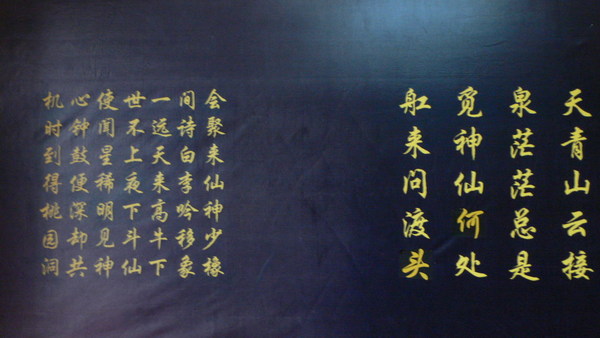 天青山云接
泉茫茫总是
觅神仙何处
舡来问渡头
会聚来仙神少橡
间诗白李吟移象
一远天来高牛下
世不上夜下斗仙
使闻星稀明见神
心钟鼓便深却共
机时到得桃园洞